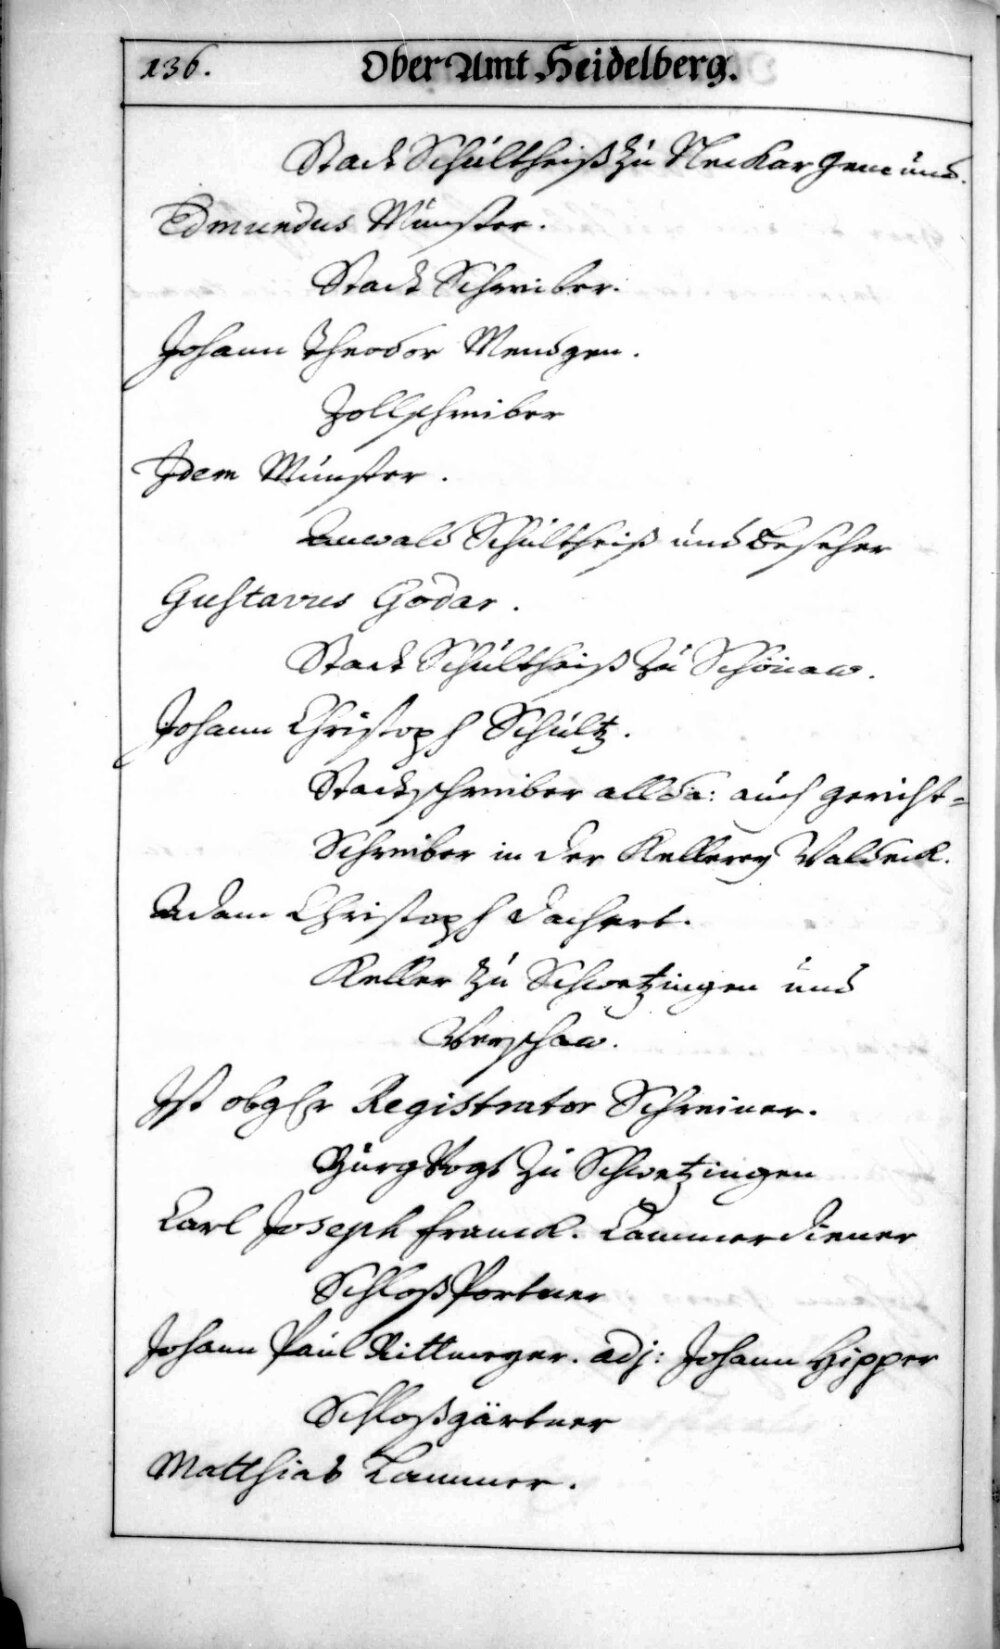 136.
Ober Amt Heidelberg.
Statt Schultheiß zu Neckar Gemünd.
Edmundus Münster.
Statt Schreiber.
Johann Theodor Mendgen.
Zollschreiber
Idem Münster.
Anwald Schultheiß und Beseher
Gustavus Godar.
Statt Schultheiß zu Schönaw.
Johann Christoph Schültz.
Stattschreiber allda: auch gericht-
Schreiber in der Kellerey Waldeck.
Adam Christoph Dachert.
Keller zu Schwetzingen und
Werschaw.
Ist obgr Registrator Schreiner.
Burg Vogt zu Schwetzingen
Carl Joseph Franck. Cammerdiener
Schloß Portner
Johann Paul Rittmeyer. adj: Johann Hipper
Schloßgärtner
Matthias Lammer.